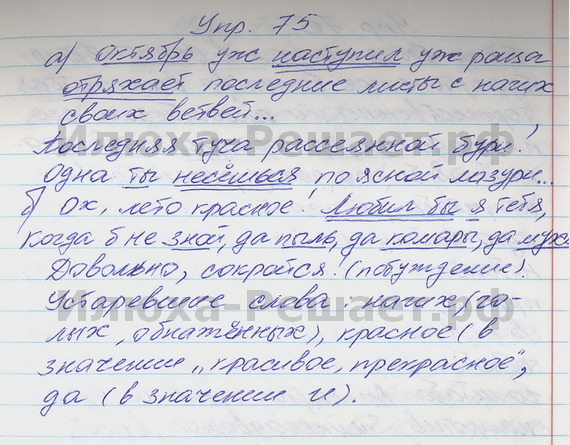 Упр. 75
а) Октябрь уж наступил уж роща
отряхает последние листы с нагих
своих ветвей...
Последняя туча рассеянной бури!
Одна ты несёшься по ясной лазури...
б) Ох, лето красное! Любил бы я тебя,
Когда б не зной, да пыль, да комары, да мухи
Довольно, сокройся! (побуждение).
Устаревшие слова: нагих, (го-
лых, обнажённых), красное (в
значении „красивое, прекрасное",
да (в значении и).
Илюха-Решает.рф
Илюха-Решает.рф